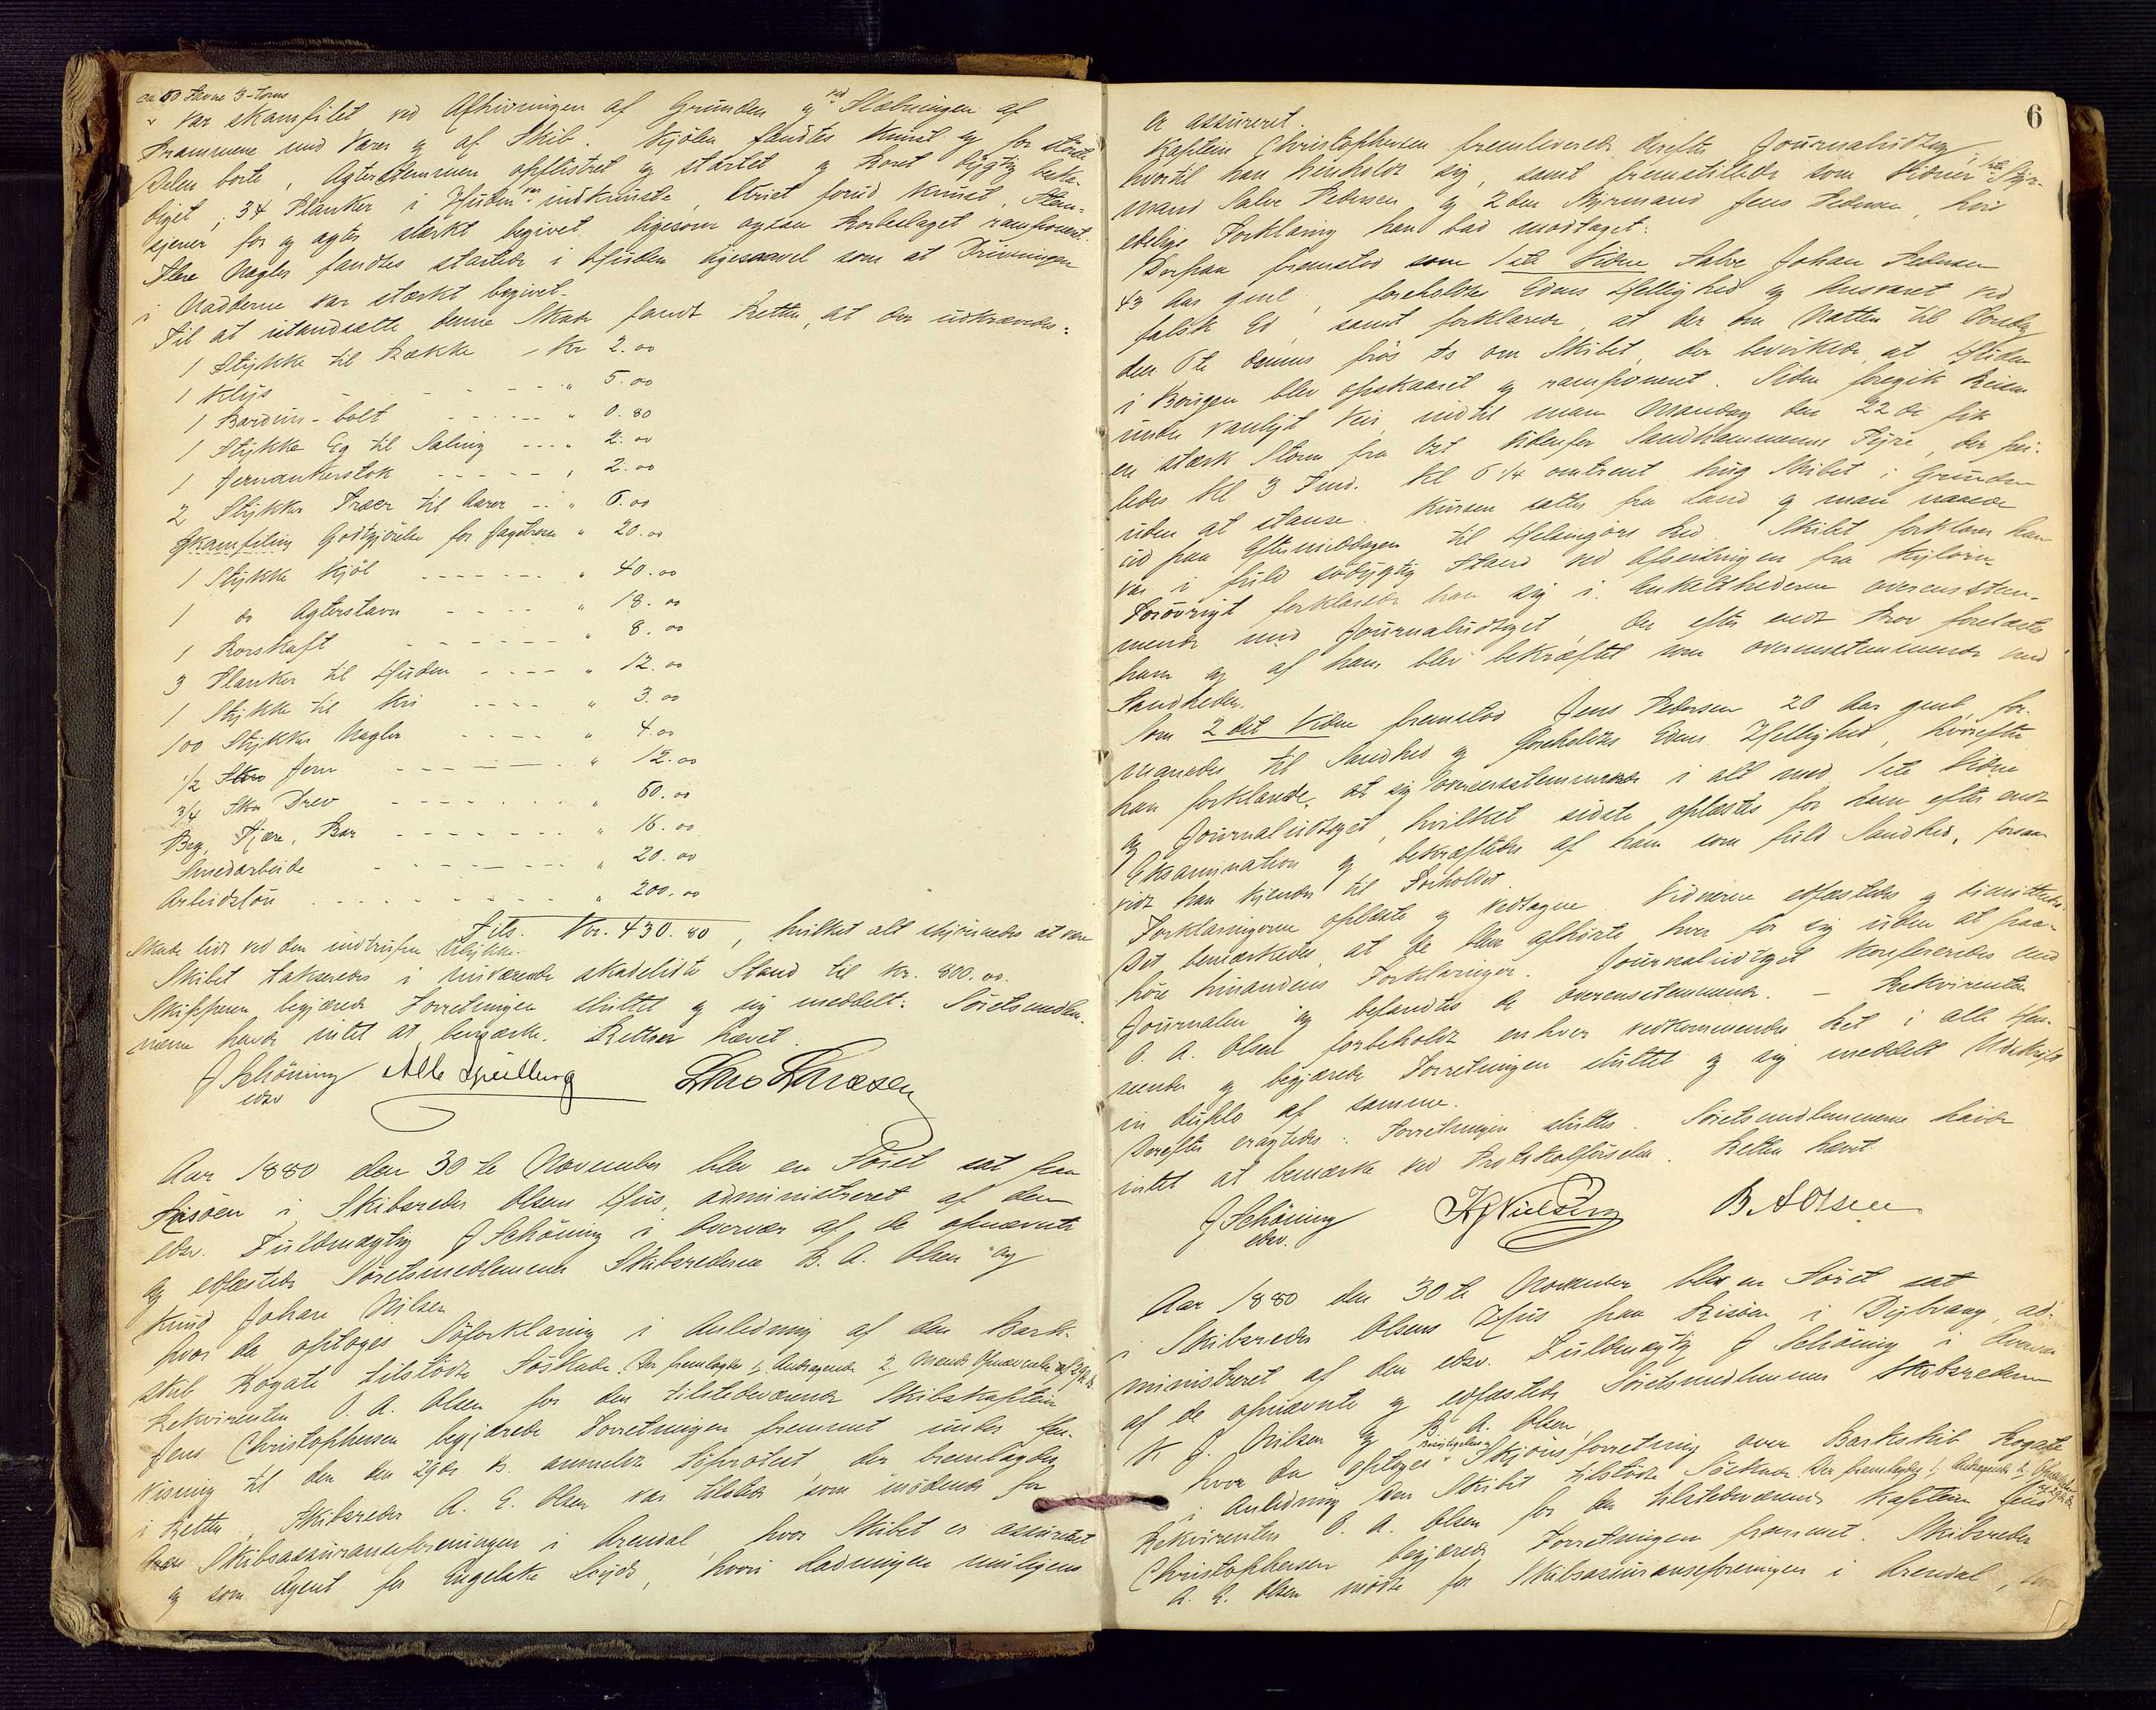 ca 50 Favne 3-toms
var skamfilet ved Afhivningen af Grunden og ved Slæbningen af
Prammene med Varer og af Skib. Kjølen fandtes knust og for største
Delen borte, Agterstemmen opflistret og startet og Roret dygtig beska-
diget, 34 Planker i Huden var indknuste, Kriet forud knust, Plan-
kjerner for og agter stærkt begivet ligesom ogsaa Rorbeslaget ramponert.
Flere Nagler fandtes startede i Huden ligesaavel som at Drivningen
i Nadderne var stærkt begivet.
Til at istandsætte denne Skade fandt Retten, at der udkrævedes:
1 Stykke til Række - Kr 2.00
1 Klys - - - " 5.00
1 Barduns-bolt - - - " 0.80
1 Stykke Eg til Saling - - - " 2.00
1 Jernankerstok - - - " 2.00
2 Stykker Træer til Aarer - - " 6.00
Skamfiling Godtgjørelse for Jagttrosse " 20.00
1 Stykke Kjøl - - - " 40.00
1 do Agterstavn - - - " 18.00
1 Rorskaft - - - " 8.00
3 Planker til Huden - - - " 12.00
1 Stykke til Kri - - - " 3.00
100 Stykker Nagler - - - " 4.00
1/2 Jern - - - " 12.00
3/4 Drev - - - " 60.00
Beg, Tjære, Bar - - - " 16.00
Smedarbeide - - - " 20.00
Arbeidsløn - - - " 200.00
Tils. Kr. 430.80, hvilket alt skjønnedes at være
Skade lidt ved den indtrufne Ulykke.
Skibet takseredes i nuværende skadelidte Stand til Kr. 800.00
Skipperen begjærede Forretningen sluttet og sig meddelt. Søretsmedlem-
merne havde intet at bemærke. Retten hævet.
J Schöning
edsv
Aar 1880 den 30te November blev en Søret sat paa
Risøen i Skibsreder Olsens Hus, administreret af den
edsv. Fuldmægtig J Schöning i Overvær af de opnævnte
og edfæstede Søretsmedlemmer Skibsrederne B. A. Olsen og
Knud Johan Nilsen
hvor da optoges Søforklaring i Anledning af den Bark-
skib Rogate tilstødte Søskade. Der fremlagdes 1, Andragende 2, Opnævnelse af 29/11 80.
Rekvirenten O. A. Olsen for den tilstedeværende Skibskaptein
Jens Christophersen begjærede Forretningen fremmet under Hen-
visning til den den 29de ds. anmeldte Søprotest der fremlagdes
i Retten. Skibsreder A. E. Olsen var tilstede som mødende for
Skibsassuranseforeningen i Arendal, hvor Skibet er assureret
og som Agent for Engelske Lloyds, hvori Ladningen muligens
6
er assureret.
Kaptein Christophersen fremleverede derefter Journaludtog
hvortil han henholdt sig, samt fremstillede som Vidner 1ste Styr-
mand Salve Pedersen og 2den Styrmand Jens Pedersen, hvis
edelige Forklaring han bad modtaget.
Derpaa fremstod som 1ste Vidne Salve Johan Pedersen
43 Aar gml, foreholdtes Edens Hellighed og Ansvaret ved
falsk Ed, samt forklarede, at der om Natten til Torsdag
den 6te dennes frøs Is om Skibet, der bevirkede, at Huden
i Bougen blev opskaaret og ramponeret. Siden foregik Reisen
under vanligt Veir, indtil man Mandag den 22de fik
en stærk Storm fra Ost udenfor Sandhammerens Fyre, der pei-
ledes Kl 3 Fmd. Kl 6 1/4 omtrent hug Skibet i Grunden
uden at stanse. Kursen sattes fra Land og man naaede
ud paa Eftermiddagen til Helsingørs Red. Skibet forklarer han
var i fuld sødygtig Stand ved Afseilingen fra
Forøvrigt forklarede han sig i Enkelthederne overensstem-
mende med Journaludtoget, der efter endt Prov forelæstes
ham og af ham blev bekræftet som overensstemmende med
Sandheden.
Som 2det Vidne fremstod Jens Pedersen 20 Aar gml, for-
manedes til Sandhed og foreholdtes Edens Hellighed, hvorefter
han forklarede sig overensstemmende i alt med 1ste Vidne
og Journaludtoget, hvilket sidste oplæstes for ham efter endt
Eksamination og bekræftedes af ham som fuld Sandhed, forsaa-
vidt han kjender til Forholdet.
Forklaringerne oplæste og vedtagne. Vidnerne edfæstedes og dimitteredes.
Det bemærkedes, at de blev afhørte hver for sig uden at paa-
høre hinandens Forklaringer. Journaludtoget konfereredes med
Journalen og befandtes de overensstemmende. - Rekvirenten
O. A. Olsen forbeholdt enhver vedkommendes Ret i alle Hen-
seender og begjærede Forretningen sluttet og sig meddelt Udskrift
in duplo af samme.
Derefter eragtedes: Forretningen sluttes. Søretsmedlemmerne havde
intet at bemærke ved Protokolførselen. Retten hævet.
J Schöning
edsv.
K J Nielsen
B. A Olsen
Aar 1880 den 30te November blev en Søret sat
i Skibsreder Olsens Hus paa Risøen i Dybvaag, ad-
ministreret af den edsv. Fuldmægtig J Schöning i Overvær
af de opnævnte og edfæstede Søretsmedlemmer Skibsrederne
K J. Nilsen og B. A. Olsen
hvor da optoges Skjønsforretning over Barkskib Rogate
i Anledning den Skibet tilstødte Søskade. Der fremlagdes 1, Andragende 2, Opnævnelse af 29/11 80
Rekvirenten O. A. Olsen for den tilstedeværende Kaptein Jens
Christophersen begjærede Forretningen fremmet. Skibsreder
A. E. Olsen mødte for Skibsassuranseforeningen i Arendal,